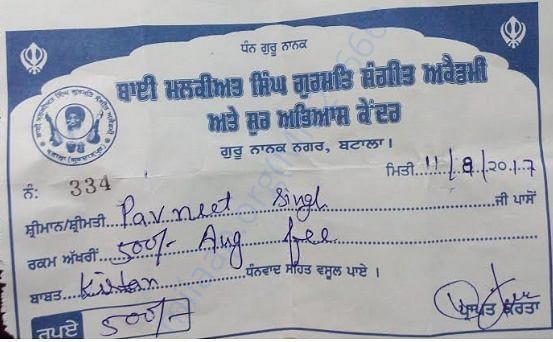 ਧੰਨ ਗੁਰੂ ਨਾਨਕ
ਭਾਈ ਮਲਕੀਅਤ ਸਿੰਘ ਗੁਰਮਤਿ ਸੰਗੀਤ ਅਕੈਡਮੀ
ਅਤੇ ਸੁਰ ਅਭਿਆਸ ਕੇਂਦਰ
ਗੁਰੂ ਨਾਨਕ ਨਗਰ, ਬਟਾਲਾ।
ਨੰ: 334
ਮਿਤੀ 11/8/2017
ਸ਼੍ਰੀਮਾਨ/ਸ਼੍ਰੀਮਤੀ Pavneet Singh ਜੀ ਪਾਸੋਂ
ਰਕਮ ਅੱਖਰੀਂ 500/- Aug fee
ਬਾਬਤ Kirtan ਧੰਨਵਾਦ ਸਹਿਤ ਵਸੂਲ ਪਾਏ ।
ਰੁਪਏ 500/-
ਪ੍ਰਾਪਤ ਕਰਤਾ